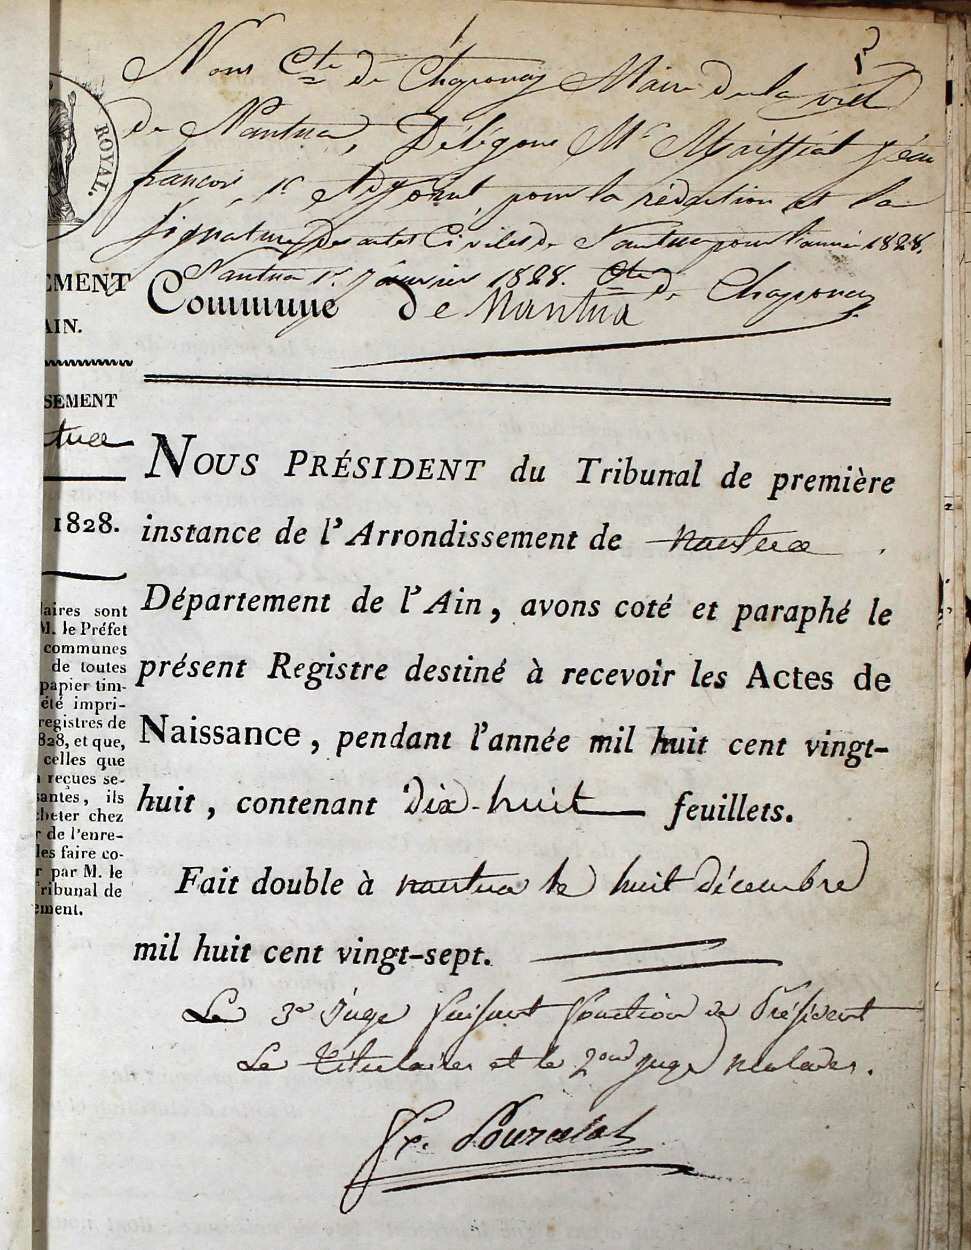 Nous Cte de Chaponay Maire de la ville
de Nantua, Délégons Mr Maissiat jean
françois, 1er Adjoint, pour la rédaction et la
signature des actes Civiles de Nantua pour l'année 1828.
Nantua 1er Janvier 1828. Cte de Chaponay
Commune de Nantua
NOUS PRÉSIDENT du Tribunal de première
instance de l'Arrondissement de nantua
Département de l'Ain, avons coté et paraphé le
présent Registre destiné à recevoir les Actes de
Naissance, pendant l'année mil huit cent vingt-
huit, contenant Dix-huit feuillets.
Fait double à nantua le huit décembre
mil huit cent vingt-sept.
Le 3e Juge faisant fonction de Président
Le titulaire et le 2ond juge malades.
ROYAL.
EMENT
AIN.
SEMENT
tua
1828.
laires sont
M. le Préfet
communes
de toutes
papier tim-
été impri-
registres de
828, et que,
celles que
reçues se-
santes, ils
cheter chez
r de l'enre-
les faire co-
r par M. le
Tribunal de
ement.